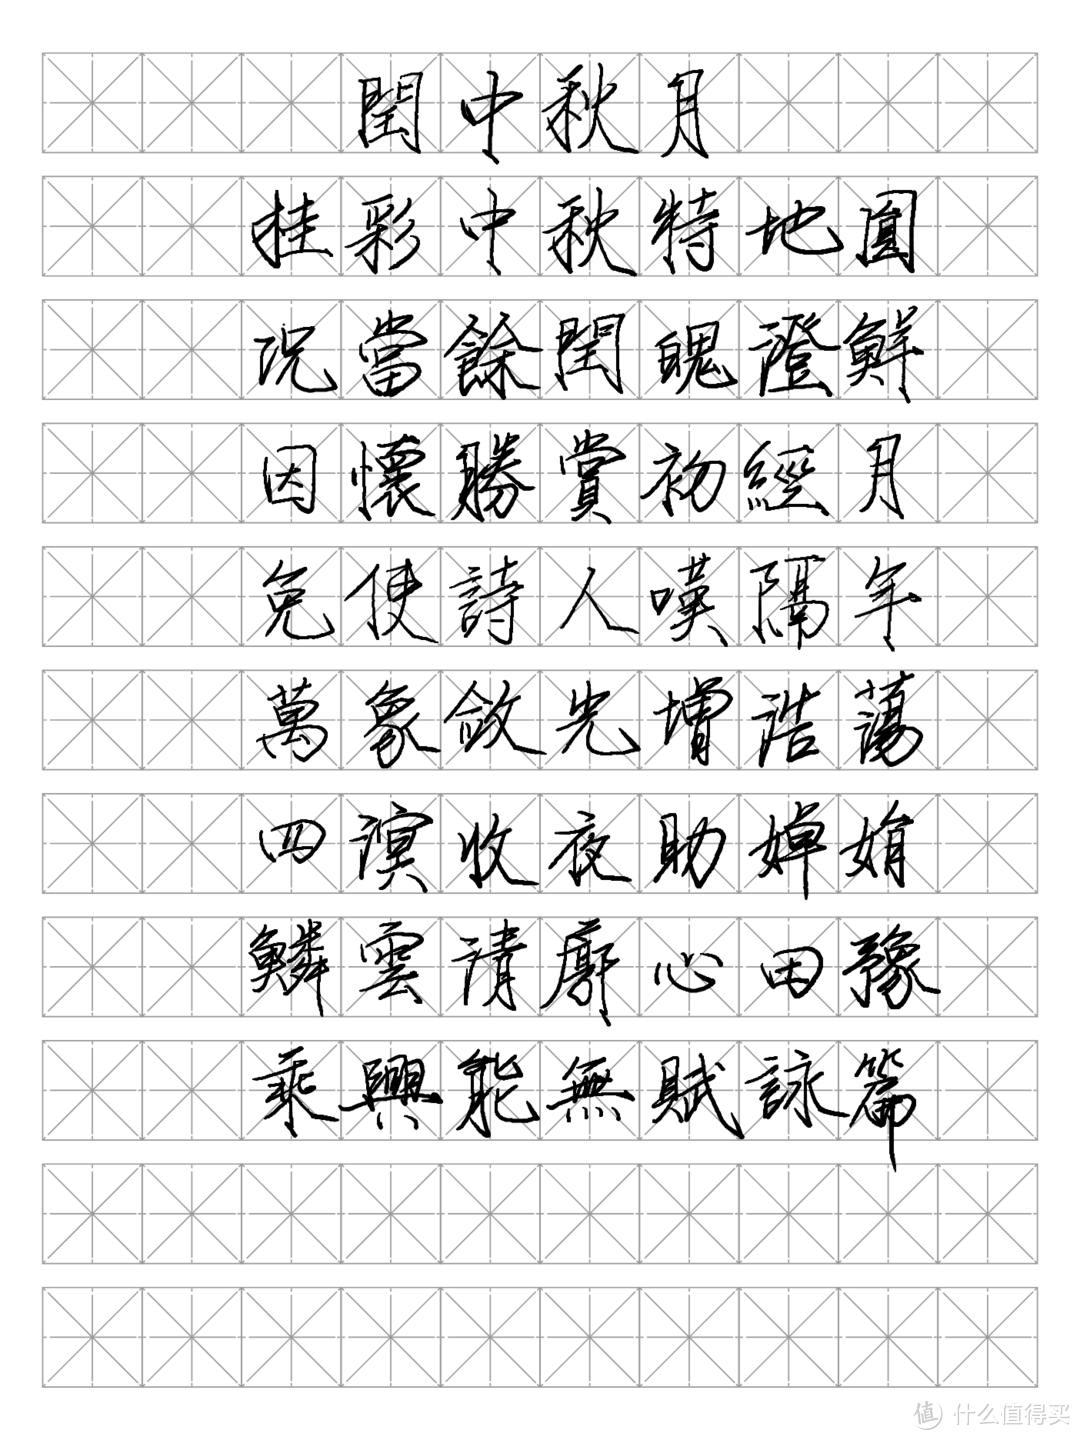 閏中秋月
桂彩中秋特地圓
况當餘閏魄澄鮮
因懷勝賞初經月
免使詩人嘆隔年
萬象敛光增浩蕩
四溟收夜助婵娟
鱗雲清廓心田豫
乘興能無賦詠篇
值 什么值得买